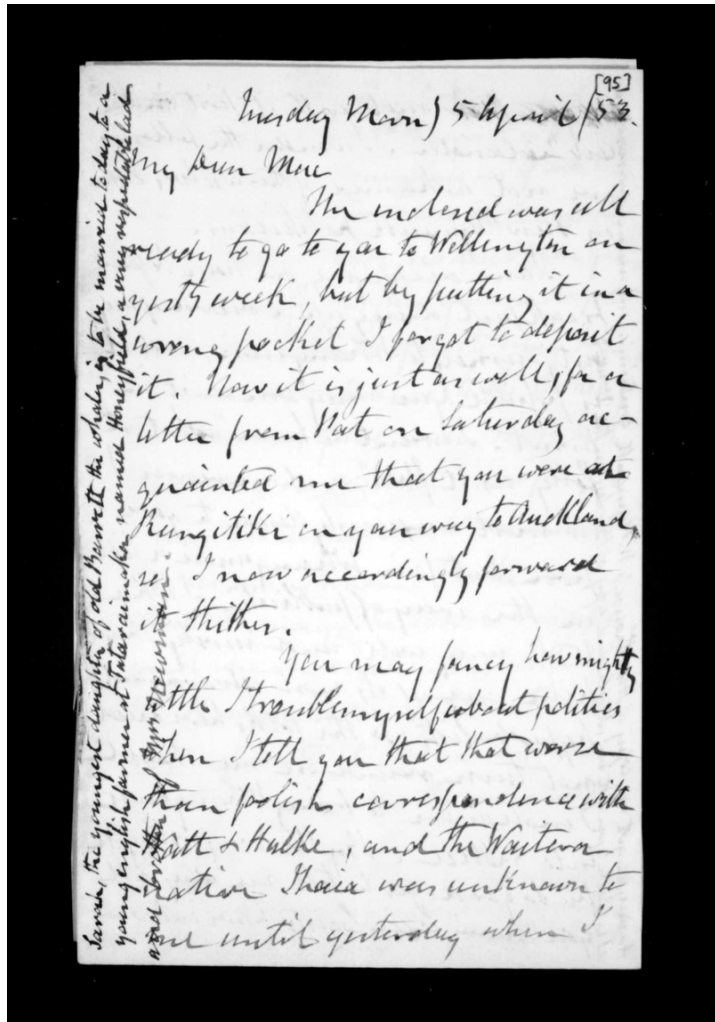 [95]
Tuesday Morng 5 April /53.
My Dear Mac
The inclosed was all
ready to go to you to Wellington on
yesty week, but by putting it in a
wrong pocket I forgot to deposit
it. Now it is just as well, for a
letter from Pat on Saturday ac-
quainted me that you were at
Rangitiki on your way to Auckland,
I now accordingly forward
it thither.
You may fancy how mighty
little I trouble myself about politics
when I tell you that that worse
than foolish correspondence with
Watt & Hulke, and the Waitera
native Ihaia was unknown to
me until yesterday when I
Sarah, the youngest daughter of old Barrett the whaler, is to be married to day to a
young english farmer at Tataraimaka named Honeyfield, a very respectable lad
and brother of Mrs Newman